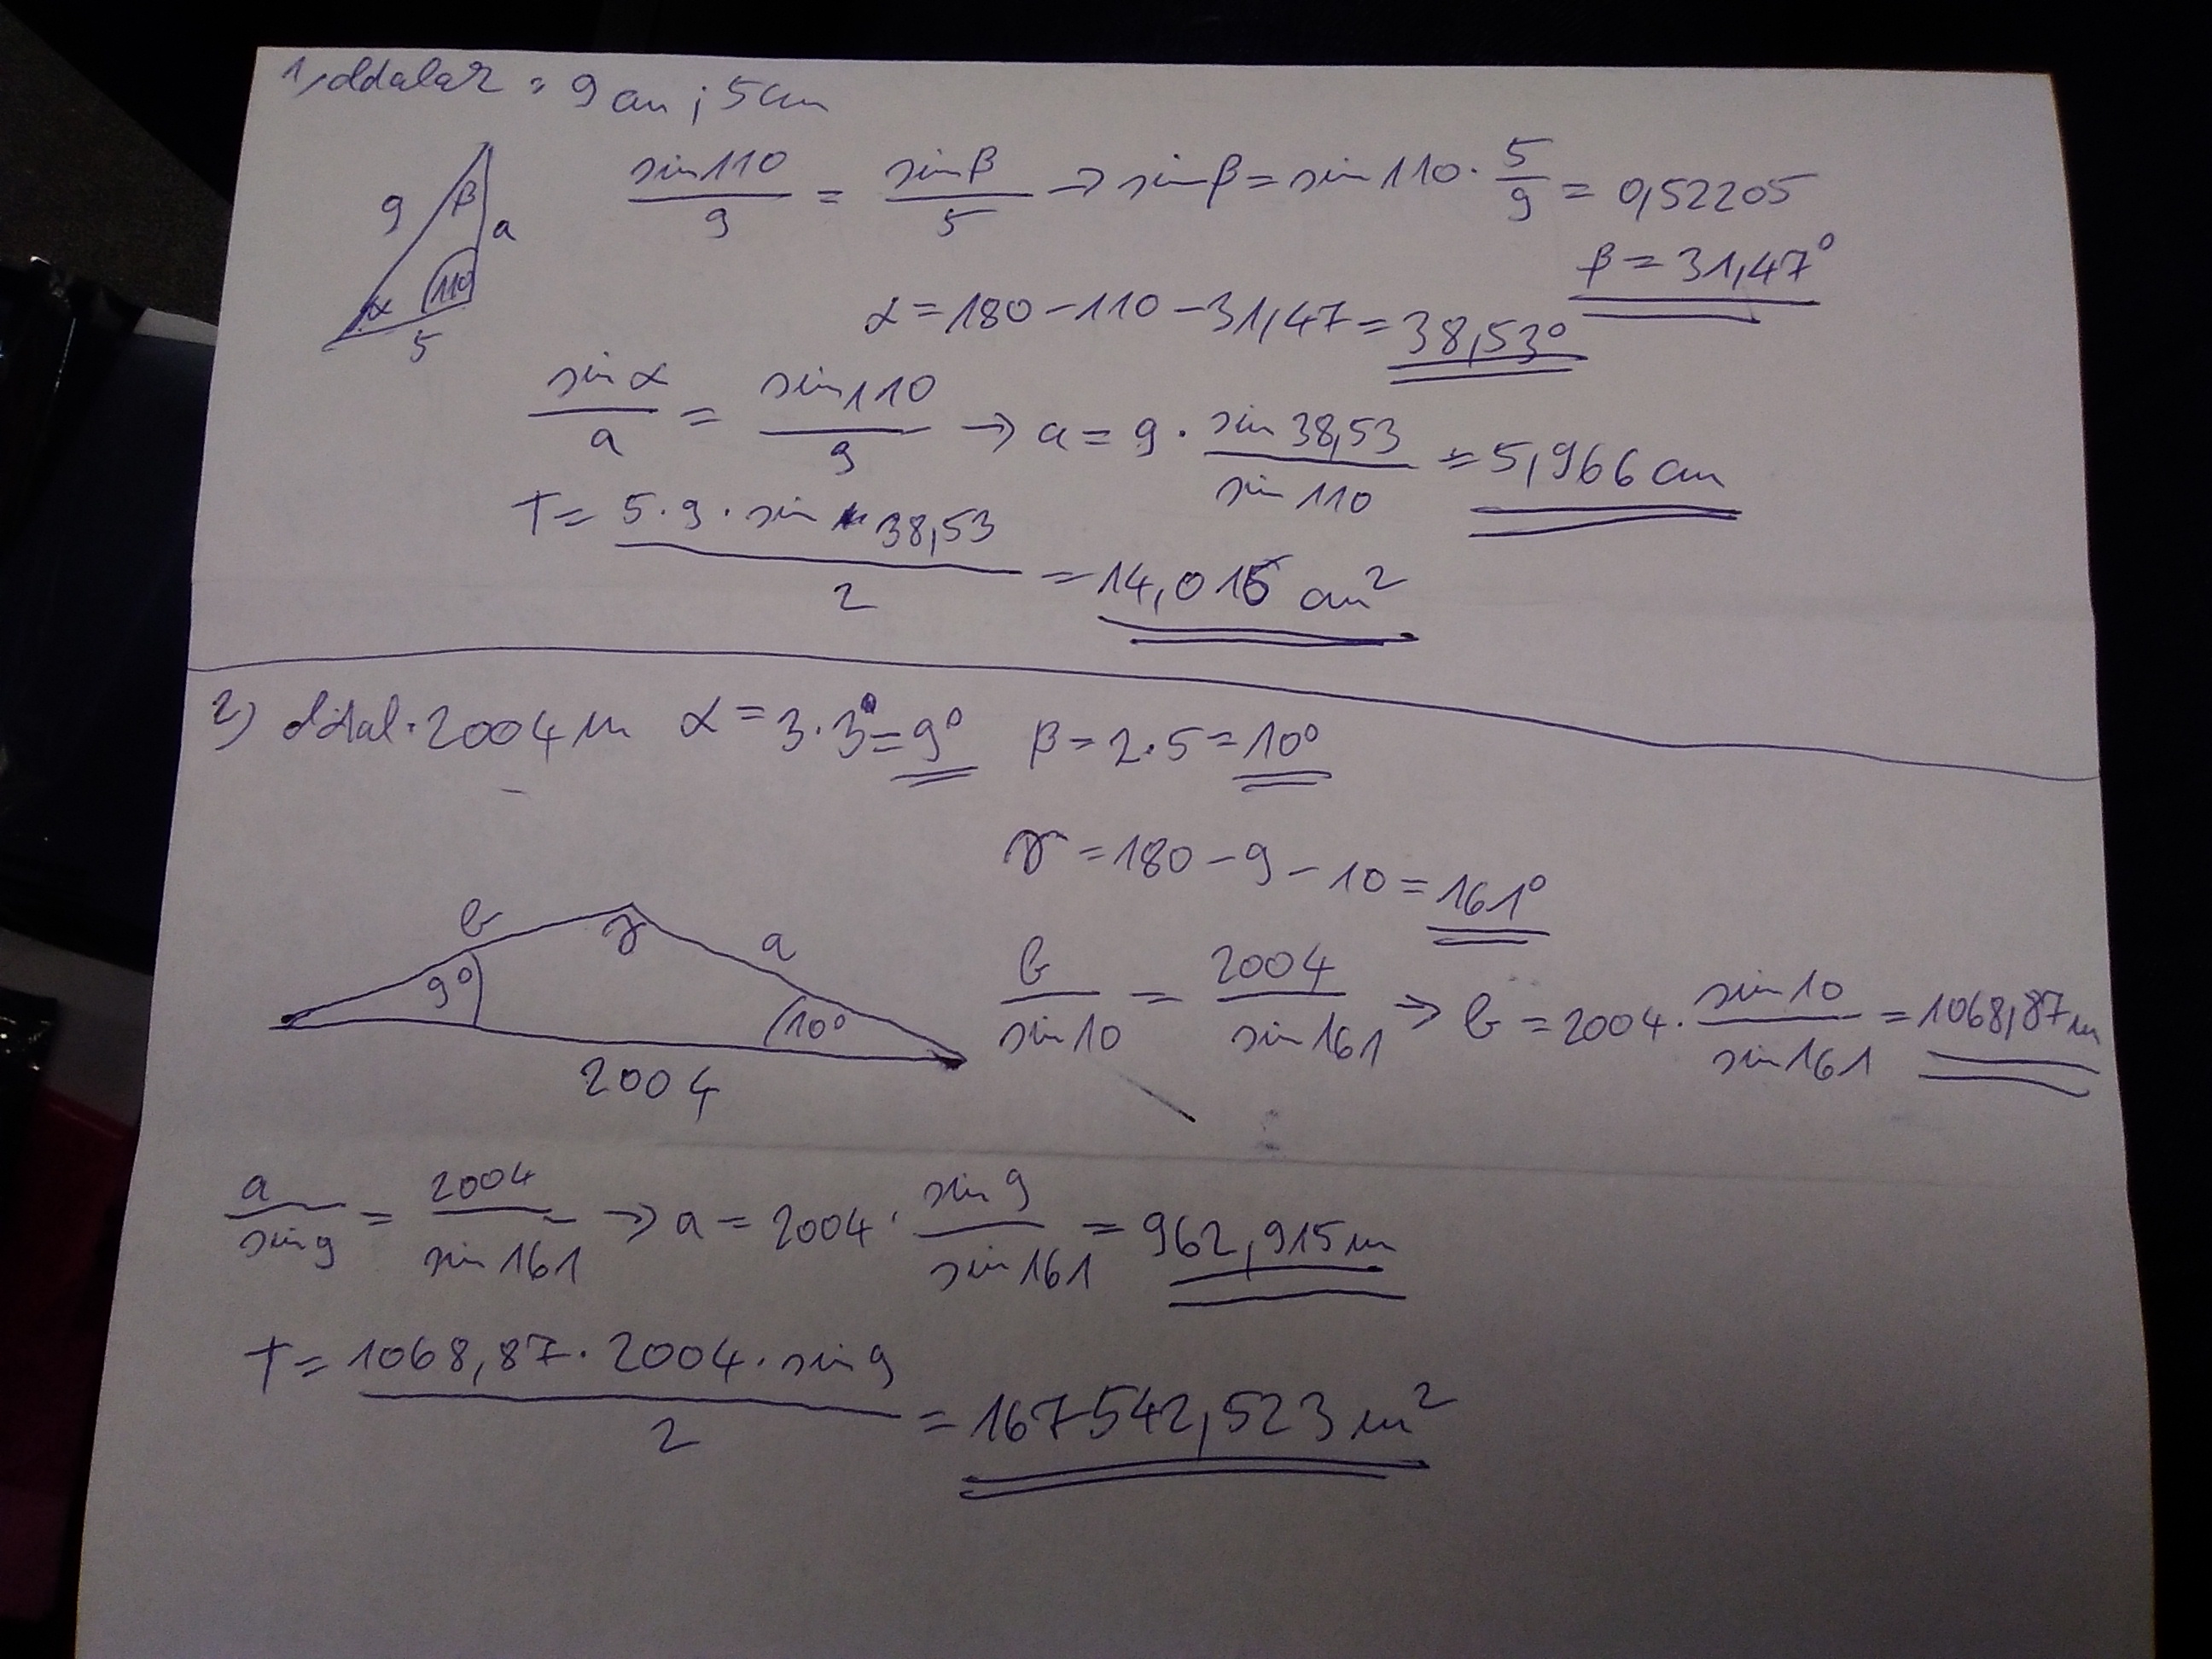 1, oldalak = 9 cm ; 5 cm
sin110/9 = sinβ/5 → sinβ = sin110 · 5/9 = 0,52205
9 β a
β = 31,47°
α 110 5
α = 180 - 110 - 31,47 = 38,53°
sinα/a = sin110/9 → a = 9 · sin38,53/sin110 = 5,966 cm
T = 5 · 9 · sin 38,53/2 = 14,016 cm²
2) oldal = 2004 m α = 3 · 3 = 9° β = 2 · 5 = 10°
γ = 180 - 9 - 10 = 161°
b γ a
9° 10°
2004
b/sin10 = 2004/sin161 → b = 2004 · sin10/sin161 = 1068,87 m
a/sin9 = 2004/sin161 → a = 2004 · sin9/sin161 = 962,915 m
T = 1068,87 · 2004 · sin9/2 = 167542,523 m²